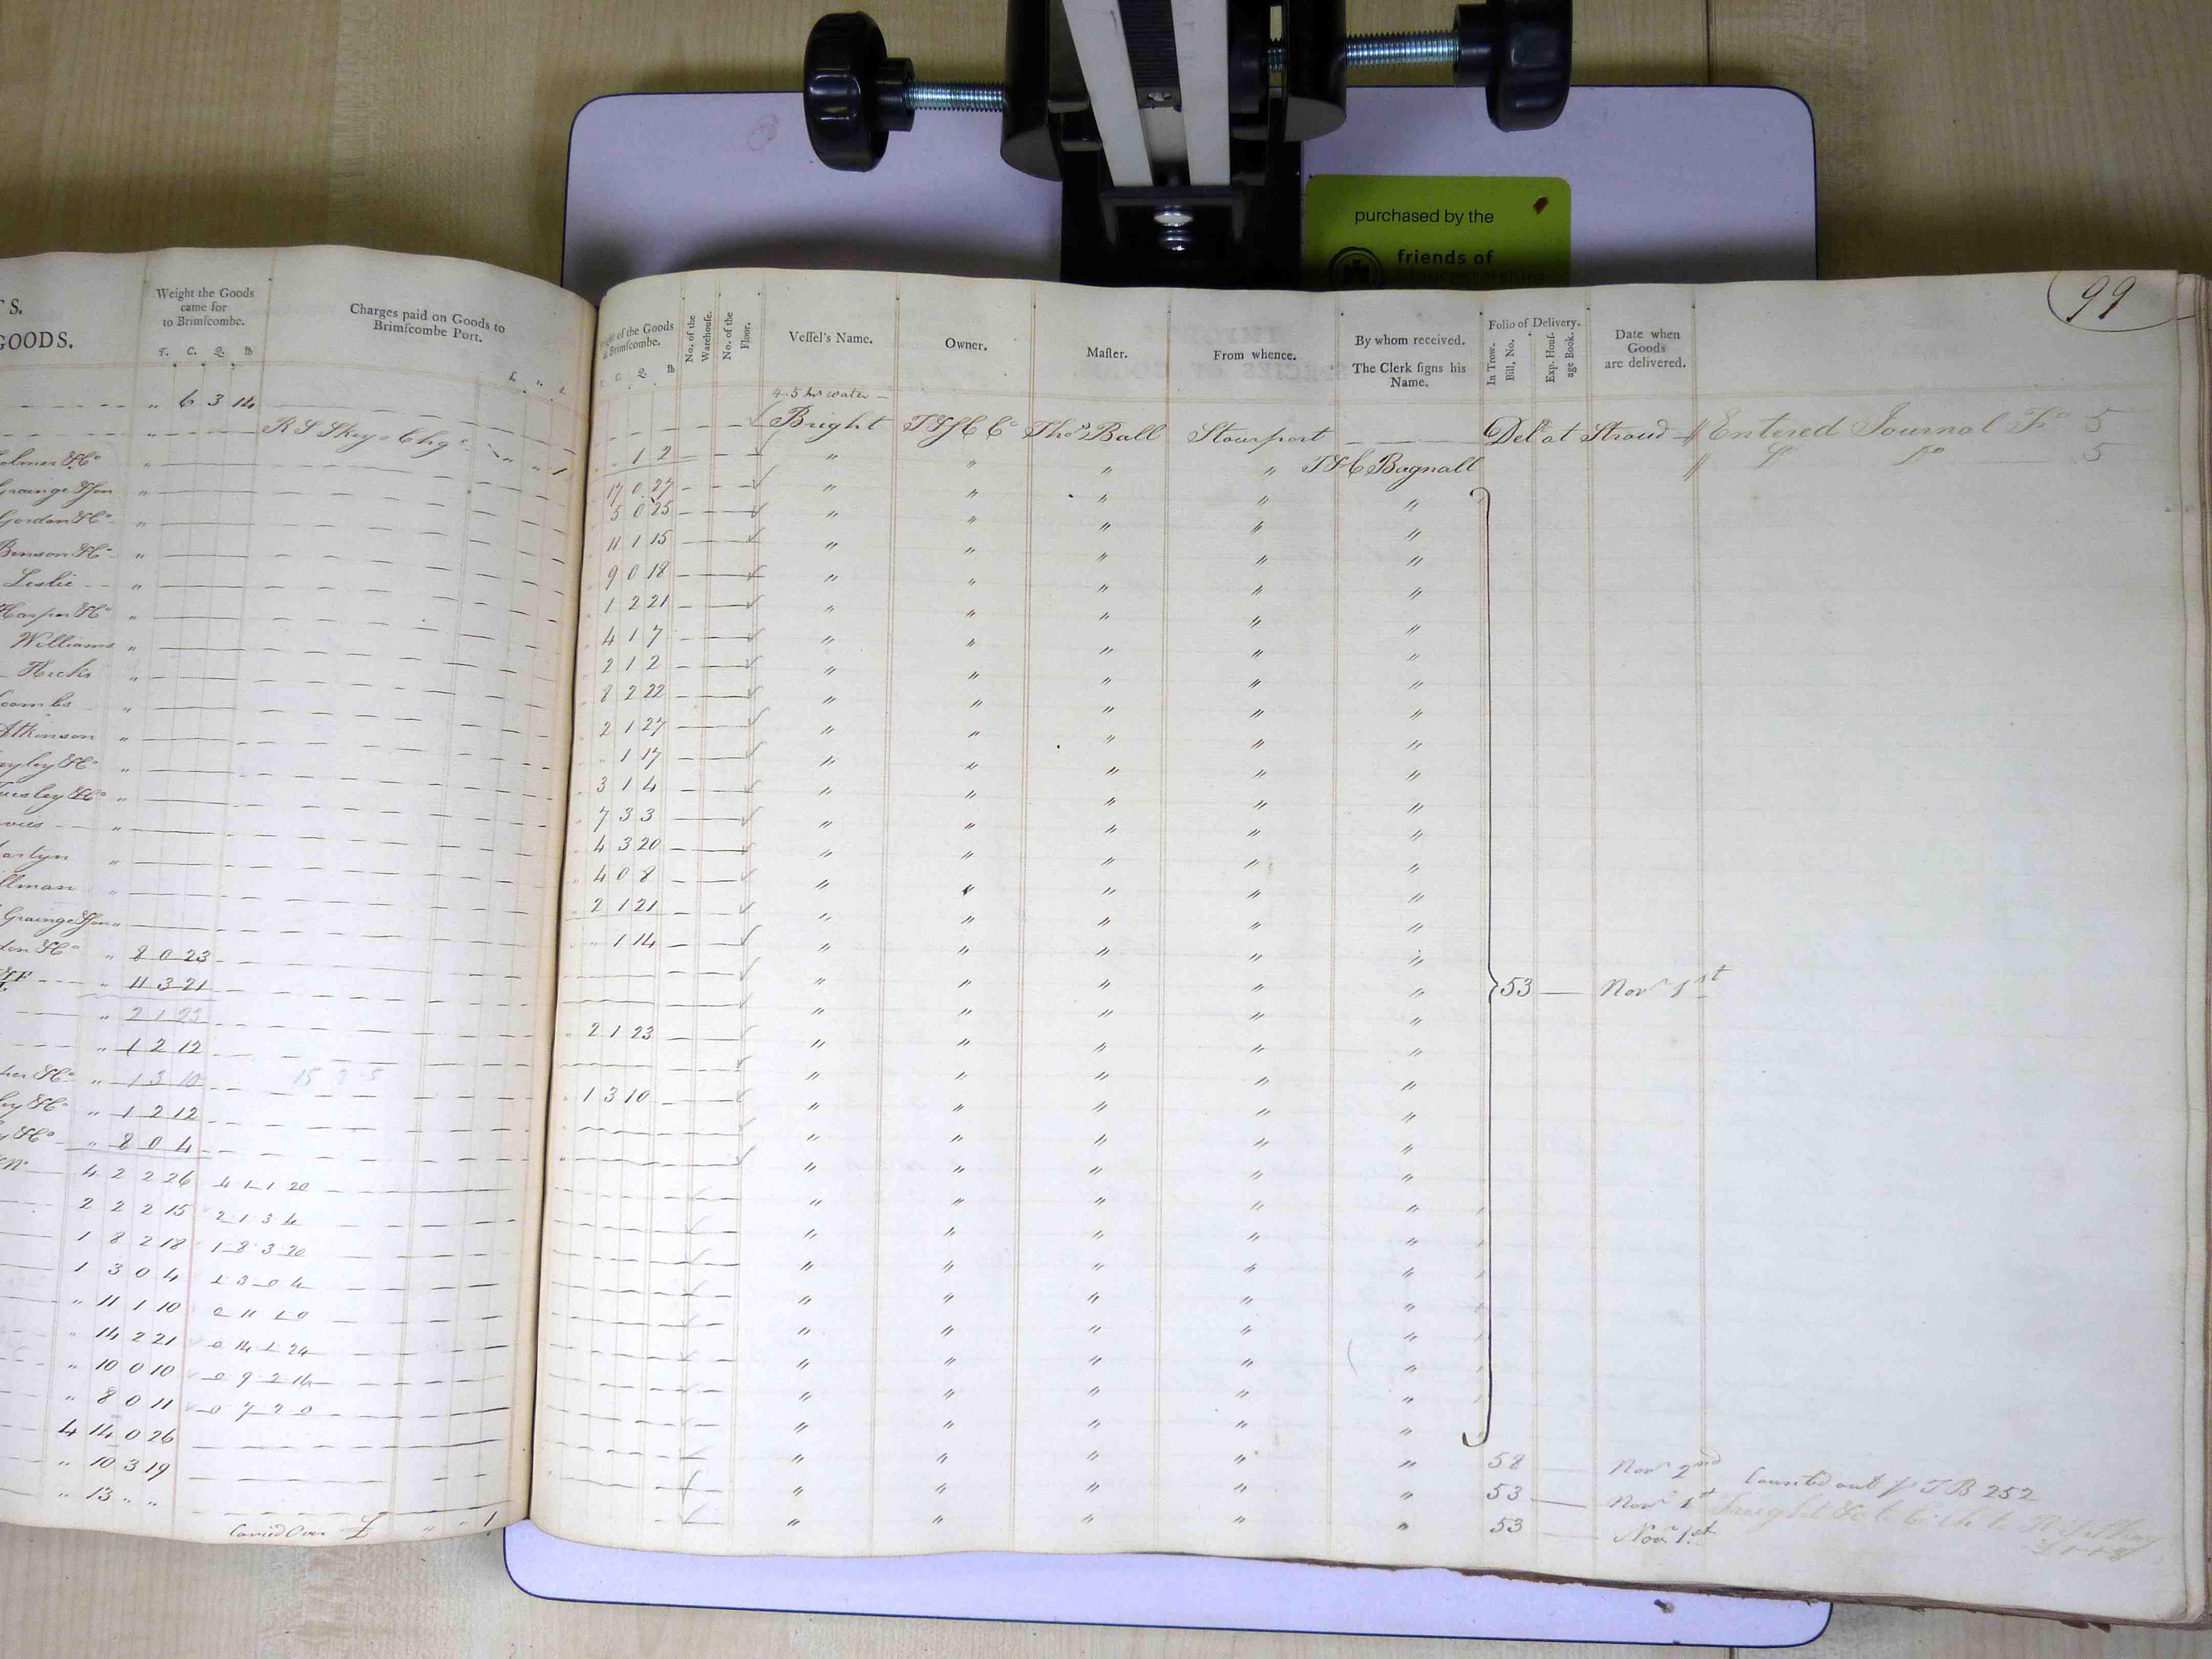 purchased by the
friends of
Gloucestershire
99
S.
GOODS.
Weight the Goods
came for
to Brimſcombe.
T. C. Q. lb
Charges paid on Goods to
Brimſcombe Port.
" 6 3 14
R S Skey & Chgs " " 1
olmer & Co "
Grainge & Son "
Gordon & Co "
Benson & Co "
Leslie "
Harper & Co "
Williams "
Hicks "
coombs "
Atkinson "
ayley & Co "
uesley & Co "
vies "
artyn "
llman "
Grainge & Son "
don & Co " 8 0 23
& F " 11 3 21
" 2 1 23
" 1 2 12
per & Co " 1 3 10 15 2 5
ley & Co " 1 2 12
& Co " 8 0 4
4 2 2 26 4 1 1 20
2 2 2 15 2 1 3 4
1 8 2 18 1 8 3 20
1 3 0 4 1 3 0 4
" 11 1 10 0 11 1 0
" 14 2 21 0 14 1 24
" 10 0 10 0 9 2 14
" 8 0 11 0 7 2 0
4 14 0 26
" 10 3 19
" 13 " "
Carried Over £ " " 1
of the Goods
Brimſcombe.
C. Q. lb
No. of the
Warehouſe.
No. of the
Floor.
Veſſel's Name.
Owner.
Maſter.
From whence.
By whom received.
The Clerk ſigns his
Name.
Folio of Delivery.
In Trow.
Bill, No.
Exp. Houſ.
age Book.
Date when
Goods
are delivered.
4.5 hrs water
Bright T & J H Co Thos Ball Stourport Deld at Stroud // Entered Journal Fo 5
1 2 " " " " T & C Bagnall // Do Do 5
17 0 27 " " " " "
5 0 25 " " " " "
11 1 15 " " " " "
9 0 18 " " " " "
1 2 21 " " " " "
4 1 7 " " " " "
2 1 2 " " " " "
8 2 22 " " " " "
2 1 27 " " " " "
" 1 17 " " " " "
3 1 4 " " " " "
7 3 3 " " " " "
4 3 20 " " " " "
4 0 8 " " " " "
2 1 21 " " " " "
" 1 14 " " " " "
" " " " " 53 Novr 1st
" " " " "
2 1 23 " " " " "
" " " " "
1 3 10 " " " " "
" " " " "
" " " " "
" " " " "
" " " " "
" " " " "
" " " " "
" " " " "
" " " " "
" " " " "
" " " " "
" " " " "
" " " " " 58 Novr 2nd Counted out p T B 252
" " " " " 53 Novr 1st
" " " " " 53 Novr 1st